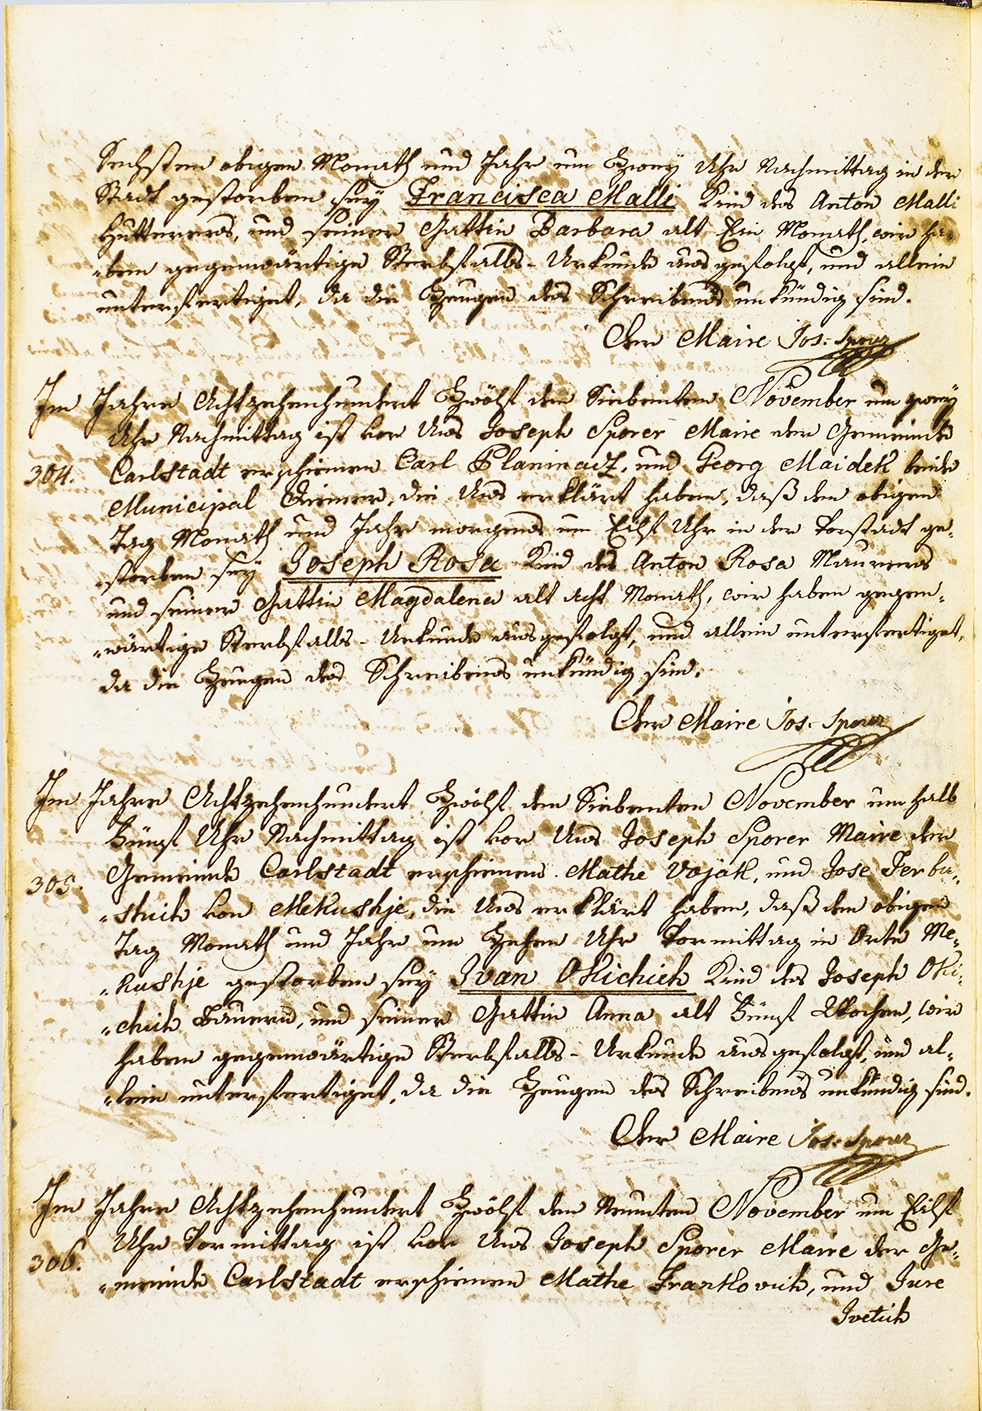 Sechsten obigen Monath und Jahr um Zwey Uhr Nachmittag in der
Stadt gestorben sey Francisca Malli Kind des Anton Malli
Hutterers, und seiner Gattin Barbara alt Ein Monath, wir ha-
-ben gegenwärtige Sterbfalls-Urkunde ausgefolgt, und allein
unterfertiget, da die Zeugen des Schreibens unkündig sind.
Der Maire Jos. Sporer
Im Jahre Achtzehenhundert Zwölf den Siebenten November um zwey
Uhr Nachmittag ist vor Uns Joseph Sporer Maire der Gemeinde
304. Carlstadt erschienen Carl Planinacz, und Georg Maidek beide
Municipal Diener, die Uns erklärt haben, daß den obigen
Tag Monath und Jahr morgends um Eilf Uhr in der Vorstadt ge-
-storben sey Joseph Rosa Kind des Anton Rosa Maurers
und seiner Gattin Magdalena alt acht Monath, wir haben gegen-
-wärtige Sterbfalls-Urkunde ausgefolgt, und allein unterfertiget,
da die Zeugen des Schreibens unkündig sind.
Der Maire Jos. Sporer
Im Jahre Achtzehenhundert Zwölf den Siebenten November um halb
Fünf Uhr Nachmittag ist vor Uns Joseph Sporer Maire der
305. Gemeinde Carlstadt erschienen Mathe Vojak, und Jose Ferba-
-stich von Mekushje, die Uns erklärt haben, daß den obigen
Tag Monath und Jahr um Zehen Uhr Vormittag in Orte Me-
-kushje gestorben sey Ivan Okichich Kind des Joseph Oki-
-chich Bauern, und seiner Gattin Anna alt Fünf Wochen, wir
haben gegenwärtige Sterbfalls-Urkunde ausgefolgt, und al-
-lein unterfertiget, da die Zeugen des Schreibens unkündig sind.
Der Maire Jos. Sporer
Im Jahre Achtzehenhundert Zwölf den Neunten November um Eilf
Uhr Vormittag ist vor Uns Joseph Sporer Maire der Ge-
306. -meinde Carlstadt erschienen Mathe Frankovich, und Jure
Ivetich